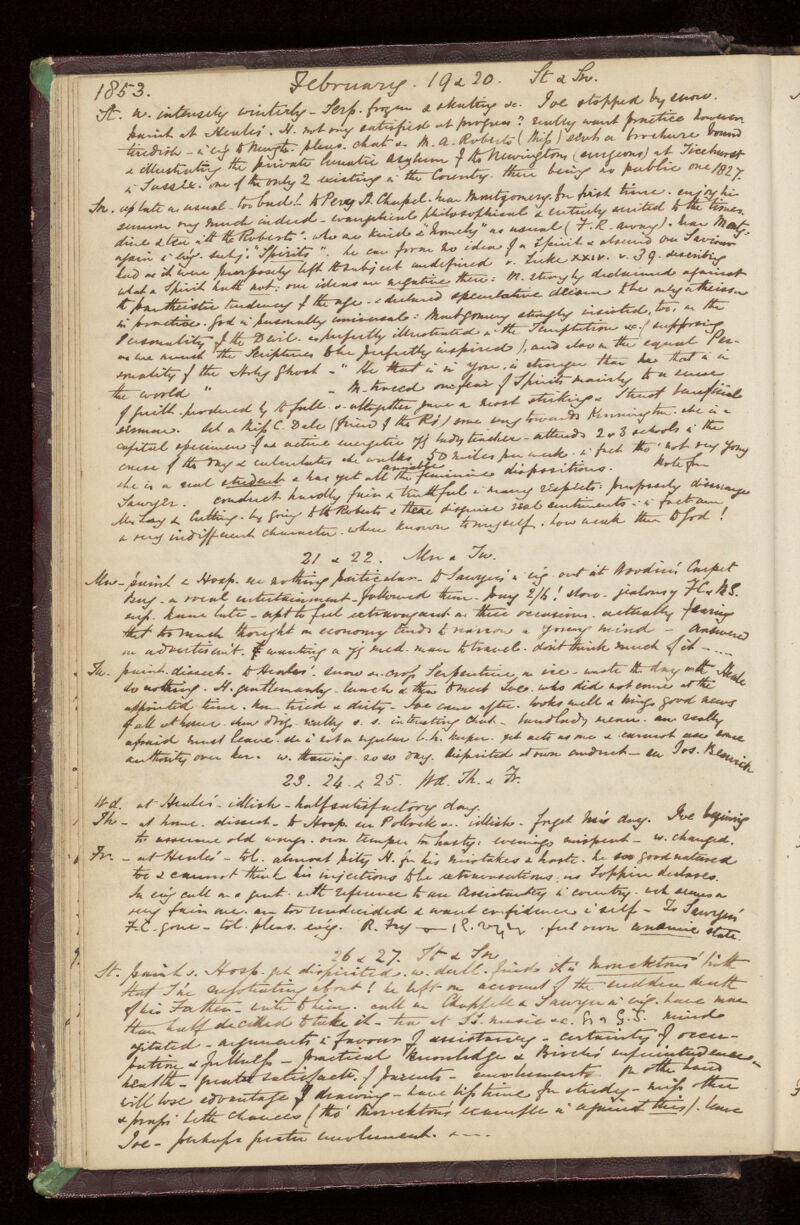 1853. February. 19 & 20. St & Sn.
St. w. intensely winterly - Serp. frozen & skating &c. Joe stopped by snow.
paint at Henles'. H. not very satisfied at progress? really want practice however
tiredish - in evg to Newgtn - pleas. chat & M. A. Roberts (Miss) sends a brochure bound
& illustrating the private lunatic asylum of the Newingtons (surgeons) at Ticehurst
in Sussex. one of the only 2 existing in the County. there being no public one 1827.
Sn. up late as usual - too bad! to Percy St. Chapel. hear Montgomery for first time. enjoy his
sermon very much indeed - evangelical philosophical & entirely suited to the times.
dine & tea with the Roberts'. who are kind & "homely" as usual (F. R. away). hear Montg.
again in evg. subj: "Spirits". he can form no idea of a Spirit & observed our Saviour
had as it were purposely left the subject undefined v. Luke xxiv. v. 39. describing
what a Spirit hath not; our ideas are negative then: M. strongly declaimed against
the pantheistic tendency of the age - & declared speculative deism to be only atheism
in practice. God is personally universal: Montgomery strongly insisted, too, on the
Personality of the Devil. as perfectly illustrated in the Temptation &c (supposing
as we must the Scriptures to be perfectly inspired), and also on the equal Per-
sonality of the Holy Ghost - "He that is in you, is stronger than he that is in
the world" - M. traced our fear of Spirits mainly to a sense
of guilt produced by the fall. & altogether gave a most striking & I trust beneficial
sermon. See a Miss C. Dale (friend of the Rs) some way towards Kennington. she is a
capital specimen of an active energetic yg lady teacher - attends 2 or 3 schools in the
course of the day & calculates she walks 50 miles per week. in fact tho' not very young
she is a real student & has yet all the amiable feminine dispositions. Note for
Sawyer. conduct hardly fair & truthful in many respects. purposely disarrange
Mr Lay & Cutting. by going to the Roberts & there disguise real sentiments. in fact am
a very indifferent character when known to myself. how weak then to God!
21 & 22. Mn & Tu.
Mn - paint & Hosp. see nothing particular. to Sawyer's in evg. out at Woodin's Carpet
Bag - a vocal entertainment - followed them. pay 2/6! slow - jealousy FC & MS.
sup. home late - apt to feel extravagant on these occasions. actually fearing
that too much thought on economy tends to narrow a young mind - Answered
an advertisemt. of wanting a yg med. man to travel. dont think much of it - ....
Tu. paint. dissect - to Henles'. snow on. crop Serpentine on ice. waste the day with
do nothing. H. gentlemanly. lunch & then to meet Joe. who did not come at the
appointed time. home tired & dirty. Joe came after. looks well & brings good news
of all at home. really s. s. interesting chat. landlady mean. am really
afraid must leave. she is not a regular l.h. keeper. yet acts as one & cannot use some
authority over her. w. thawing. so so day. dispirited at own conduct - see Jos. Beswick
23. 24. & 25. Wd. Th. & Fr.
Wd. at Henles' - idlish - half satisfactory day.
Th - at home. dissect - to Hosp. see Pollock &c. idlish. forget this day. Joe beginning
to assume old ways. own temper too hasty. evenings misspent - w. changed.
Fr. - at Henles' - tol. almost pity H. for his mistakes & haste. he so good natured
too & cannot think his injections to be extravasations, as Toppin declares.
In evg call on a gent. with reference to an Assistantcy in country. wh seems a
very fair one. am too undecided & want confidence in self - To Sawyers'
F.C. gone - tol. pleas. evg. R. Fry - feel own undecisive state.
26 & 27. St & Sn
St. paint &. Hosp. yet dispirited. w. dull. finds it is Moncktons' birth
that I'm negotiating about! he left on account of the sudden death
of his Father - write to him. call on Chappell & Sawyer in evg. have more
than half decided to take it - tea at S's. music &c. mind
agitated - arguments in favour of assistancy - certainty of occu-
pation & furthers - practical knowledge & Birch's superintendence -
health - greater satisfactn. of parents - emoluments. On the other hand
will lose advantage of drawing - have less time for study - miss other
& praps better chances (tho' Moncktons' example is against this). leave
Joe - perhaps greater emolument. &c -.